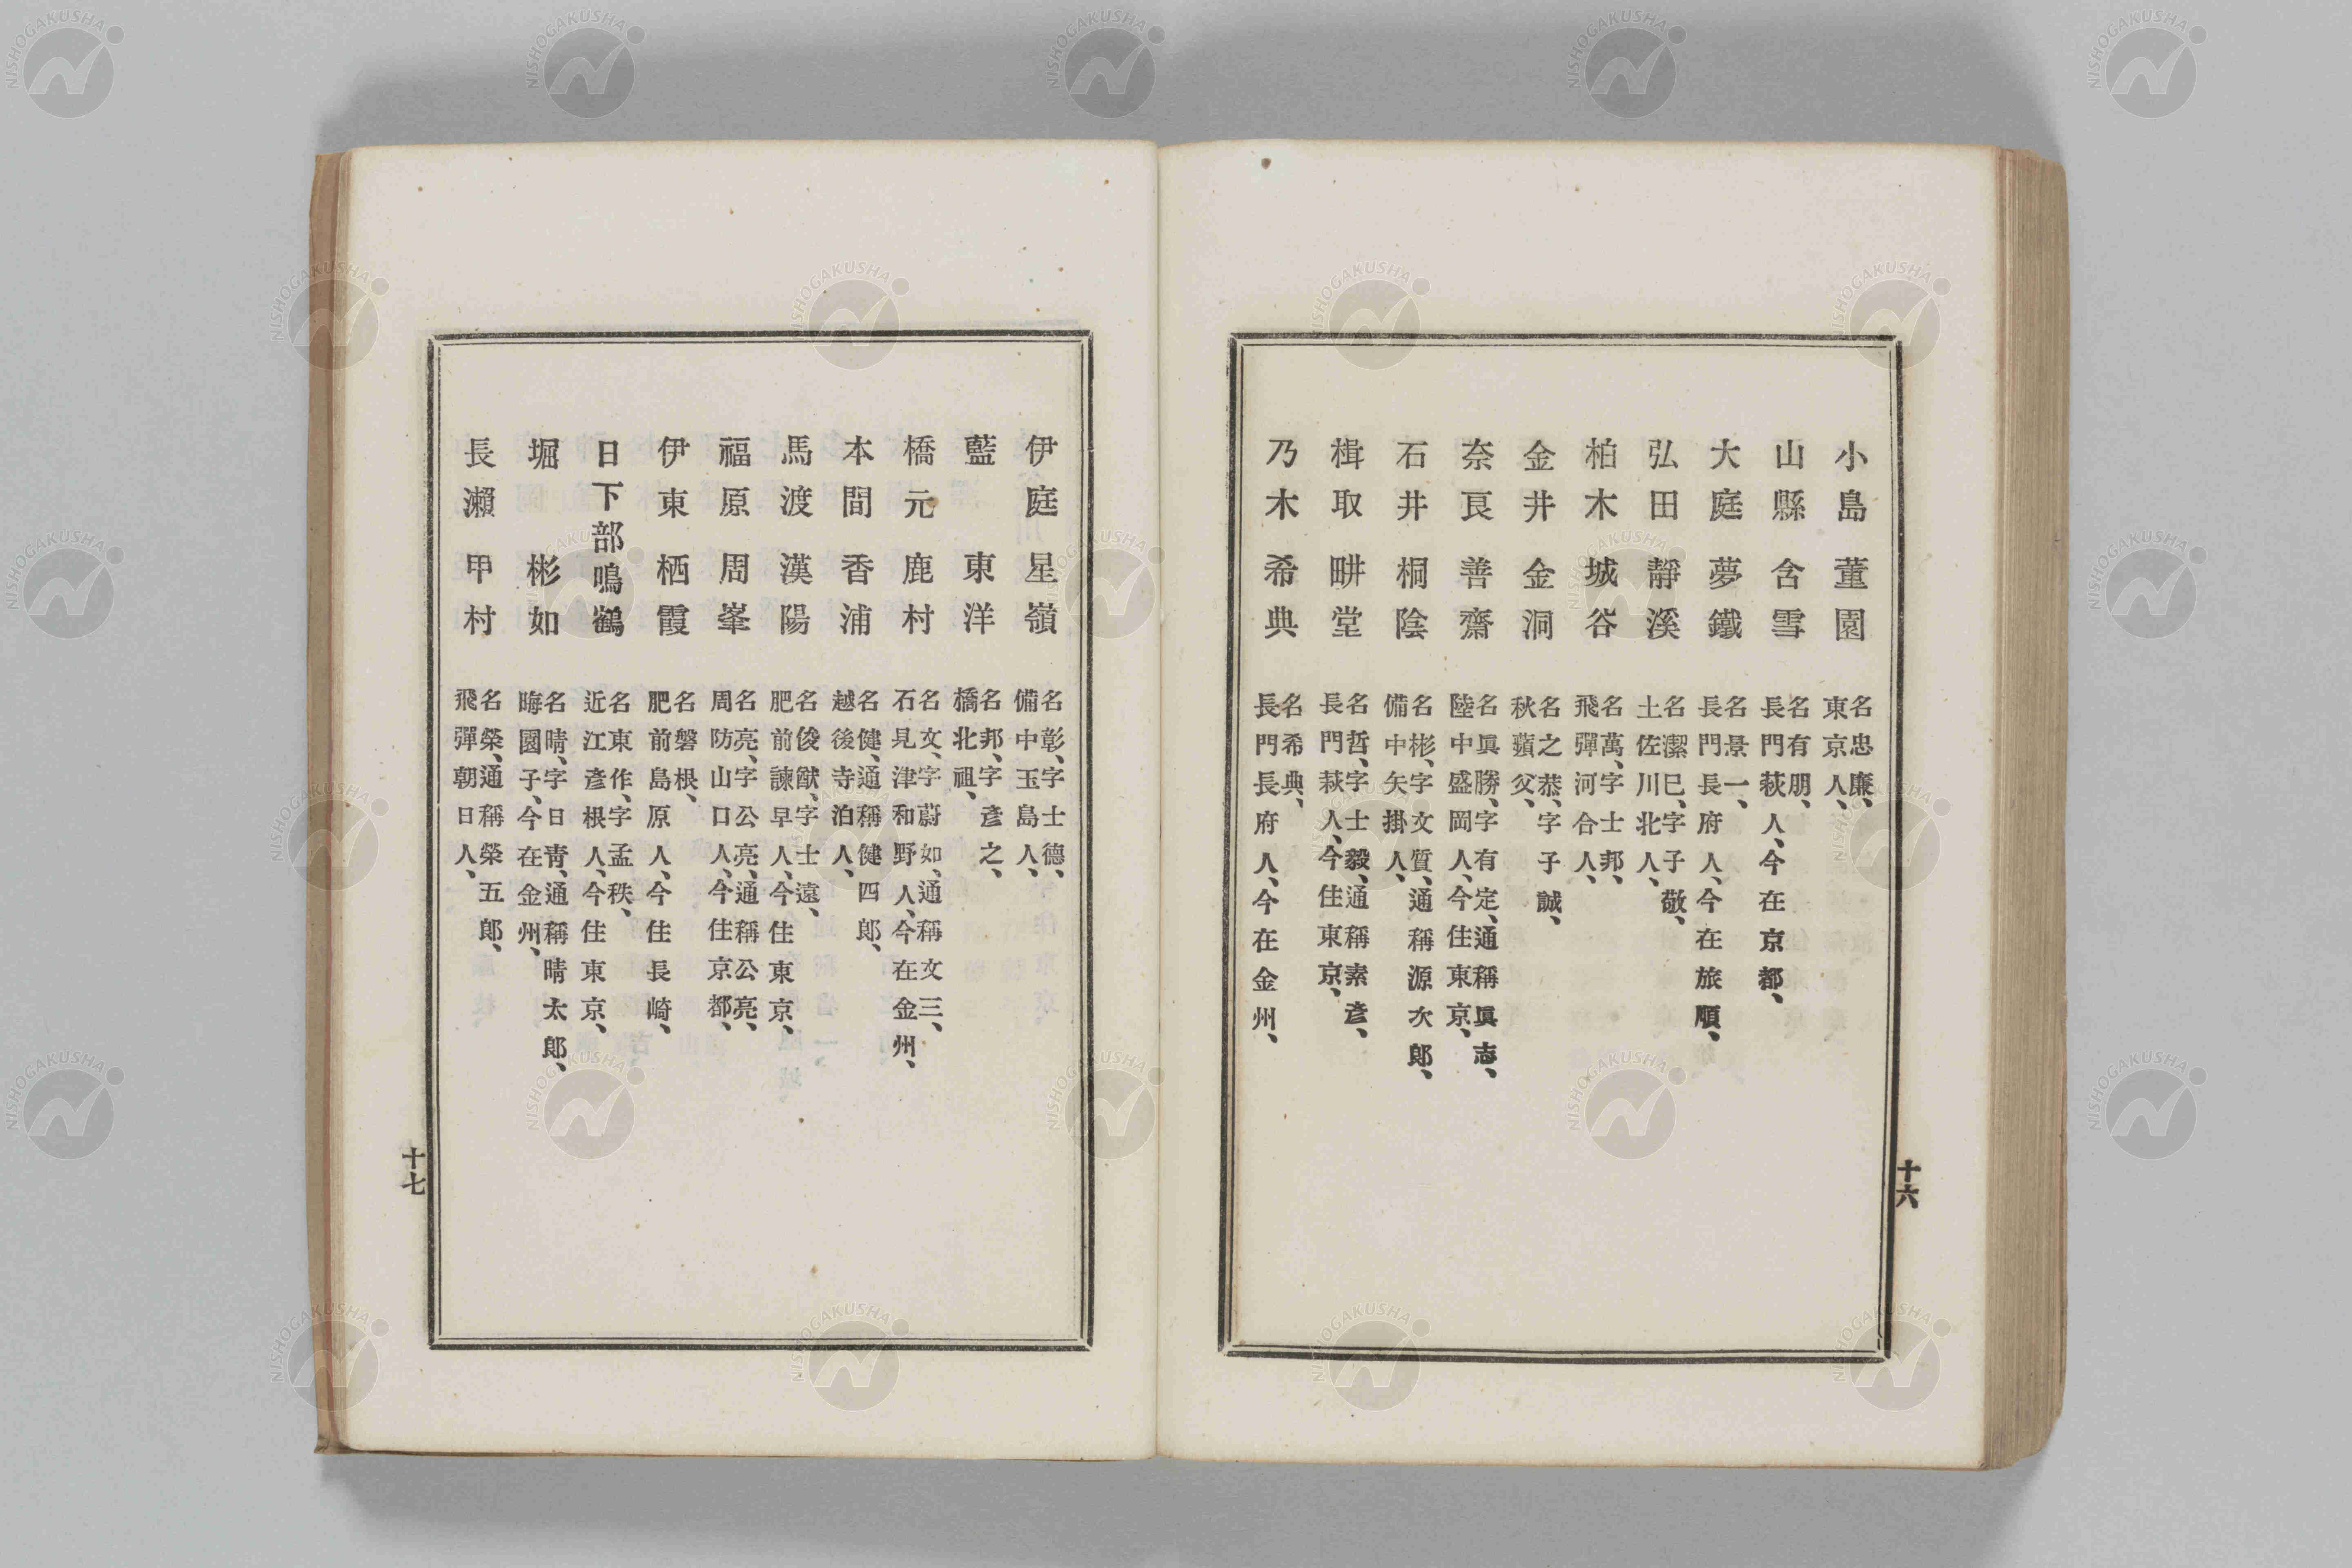 小島董園
名忠廉、
東京人、
山縣含雪
名有朋、
長門萩人、今在京都、
大庭夢鐵
名景一、
長門長府人、今在旅順、
弘田靜溪
名潔巳、字子敬、
土佐川北人、
柏木城谷
名萬、字士邦、
飛彈河合人、
金井金洞
名之恭、字子誠、
秋蘋父、
奈良善齋
名眞勝、字有定、通稱眞志、
陸中盛岡人、今住東京、
石井桐陰
名彬、字文質、通稱源次郎、
備中矢掛人、
楫取畊堂
名哲、字士毅、通稱素彥、
長門萩人、今住東京、
乃木希典
名希典、
長門長府人、今在金州、
十六
伊庭星嶺
名彰、字士德、
備中玉島人、
藍東洋
名邦、字彥之、
橋北祖、
橋元鹿村
名文、字蔚如、通稱文三、
石見津和野人、今在金州、
本間香浦
名健、通稱健四郎、
越後寺泊人、
馬渡漢陽
名俊猷、字士遠、
肥前諫早人、今住東京、
福原周峯
名亮、字公亮、通稱公亮、
周防山口人、今住京都、
伊東栖霞
名磐根、
肥前島原人、今住長崎、
日下部鳴鶴
名東作、字孟秩、
近江彥根人、今住東京、
堀彬如
名晴、字日靑、通稱晴太郎、
晦園子、今在金州、
長瀨甲村
名榮、通稱榮五郎、
飛彈朝日人、
十七
NISHOGAKUSHA